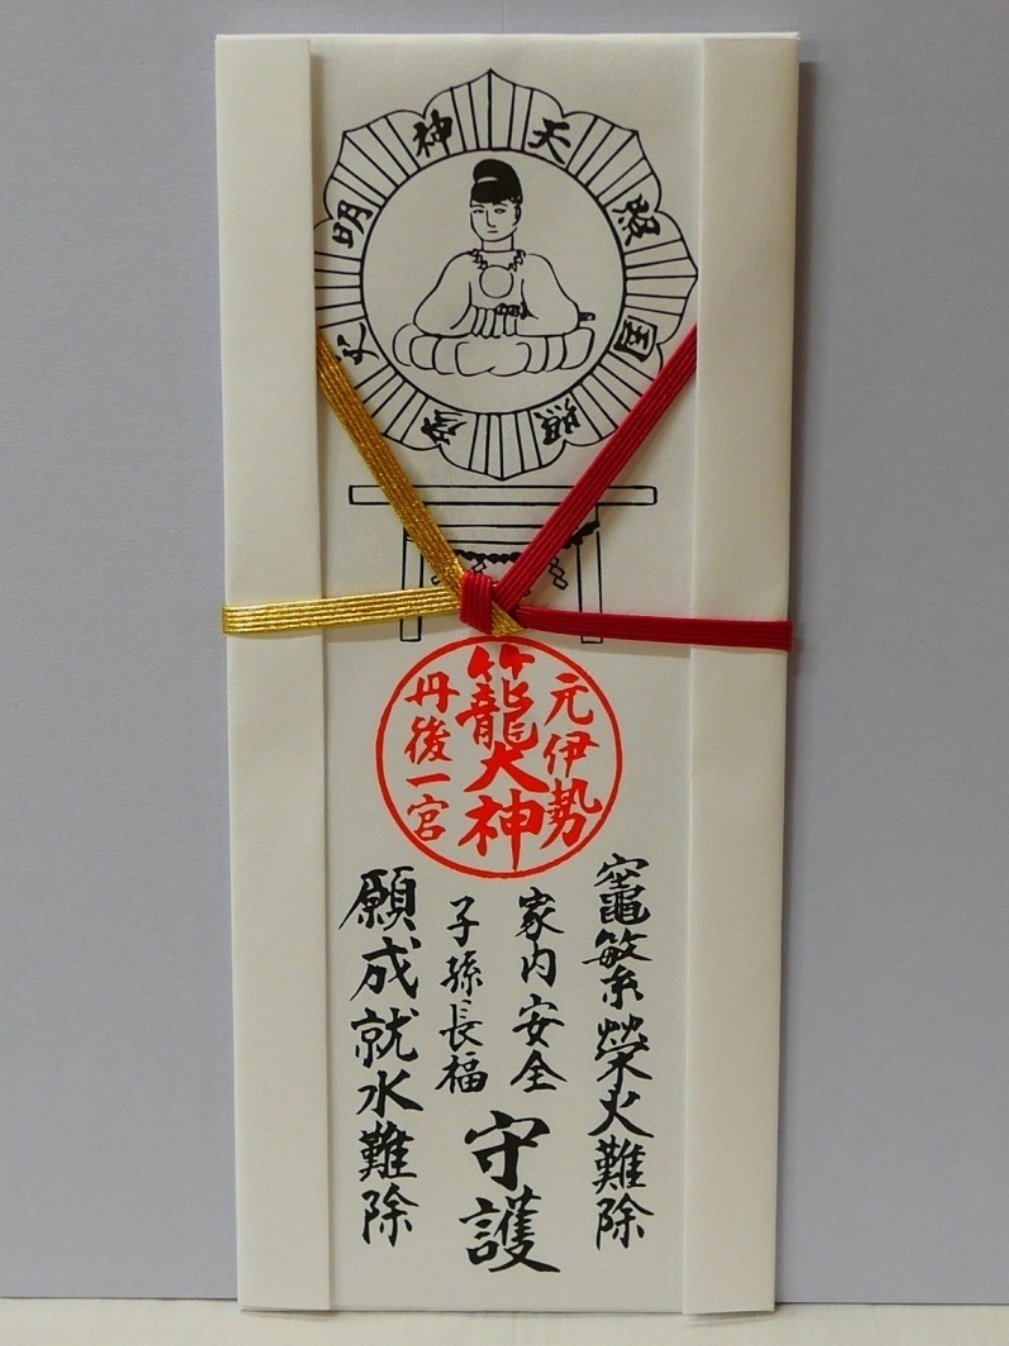 天照国照彦火明神
元伊勢
籠大神
丹後一宮
竈繁榮火難除
家内安全
子孫長福
守護
願成就水難除